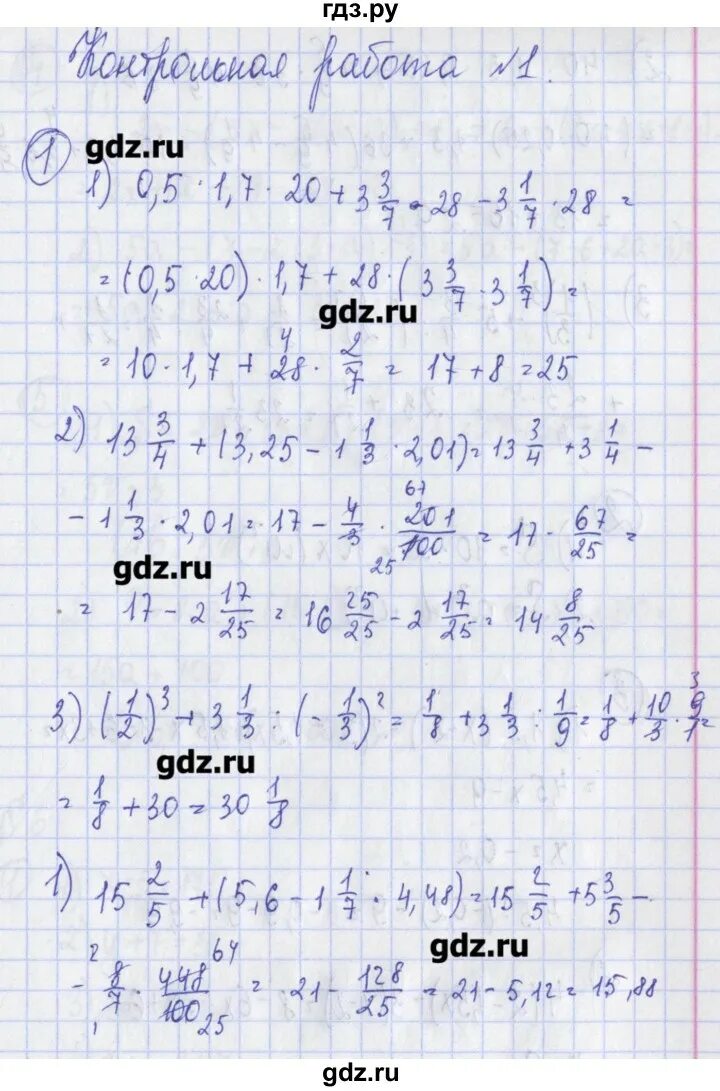 гдз.ру
Контрольная работа №1.
1 gdz.ru
1) 0,5 · 1,7 · 20 + 3 3/7 · 28 - 3 1/7 · 28 =
= (0,5 · 20) · 1,7 + 28 · (3 3/7 · 3 1/7) =
gdz.ru
= 10 · 1,7 + 28 4 · 2/7 = 17 + 8 = 25
2) 13 3/4 + (3,25 - 1 1/3 · 2,01) = 13 3/4 + 3 1/4 -
- 1 1/3 · 2,01 = 17 - 4/3 · 201 67/100 25 = 17 · 67/25 =
gdz.ru
= 17 - 2 17/25 = 16 25/25 - 2 17/25 = 14 8/25
3) (1/2)³ + 3 1/3 : (- 1/3)² = 1/8 + 3 1/3 : 1/9 = 1/8 + 10/3 · 9 3/1 =
gdz.ru
= 1/8 + 30 = 30 1/8
1) 15 2/5 + (5,6 - 1 1/7 · 4,48) = 15 2/5 + 5 3/5 -
gdz.ru
- 8 2/7 1 · 448 64/100 25 = 21 - 128/25 = 21 - 5,12 = 15,88
gdz.ru